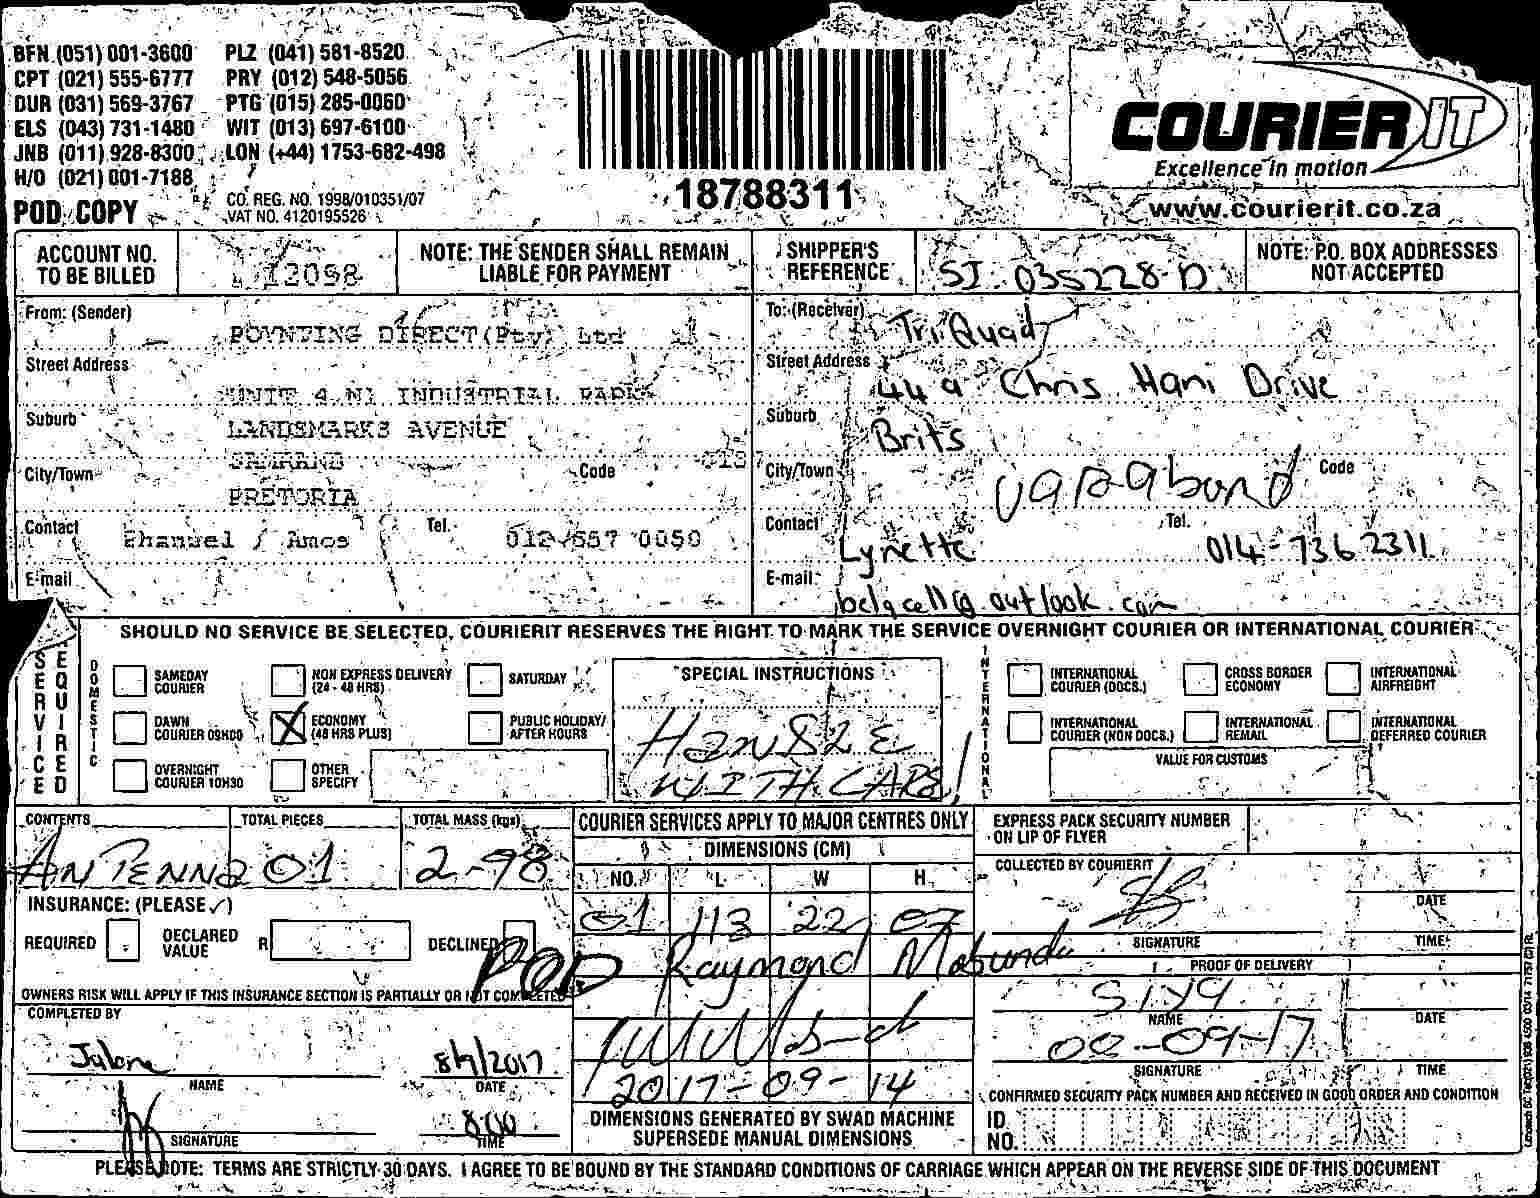 BFN (051) 001-3600 PLZ (041) 581-8520
CPT (021) 555-6777 PRY (012) 548-5056
DUR (031) 569-3767 PTG (015) 285-0060
ELS (043) 731-1480 WIT (013) 697-6100
JNB (011) 928-8300 LON (+44) 1753-682-498
H/O (021) 001-7188
POD COPY
CO. REG. NO. 1998/010351/07
VAT NO. 4120195526
18788311
COURIER IT
Excellence in motion
www.courierit.co.za
ACCOUNT NO. TO BE BILLED
12098
NOTE: THE SENDER SHALL REMAIN LIABLE FOR PAYMENT
SHIPPER'S REFERENCE
SI 035228-D
NOTE: P.O. BOX ADDRESSES NOT ACCEPTED
From: (Sender)
POYNTING DIRECT (Pty) Ltd
Street Address
UNIT 4 N1 INDUSTRIAL PARK
Suburb
LANDSMARKS AVENUE
City/Town
Code
PRETORIA
Contact
/ Amos
Tel.
012 657 0050
E-mail
To: (Receiver)
TriQuad
Street Address
44a Chris Hani Drive
Suburb
Brits
City/Town
Code
Contact
Lynette
Tel.
014-736 2311
E-mail:
@outlook.com
SHOULD NO SERVICE BE SELECTED, COURIERIT RESERVES THE RIGHT TO MARK THE SERVICE OVERNIGHT COURIER OR INTERNATIONAL COURIER
SERVICE REQUIRED
DOMESTIC
SAMEDAY COURIER
NON EXPRESS DELIVERY (24 - 48 HRS)
SATURDAY
DAWN COURIER 09H00
X ECONOMY (48 HRS PLUS)
PUBLIC HOLIDAY/ AFTER HOURS
OVERNIGHT COURIER 10H30
OTHER SPECIFY
SPECIAL INSTRUCTIONS
WITH CARE!
INTERNATIONAL
INTERNATIONAL COURIER (DOCS.)
CROSS BORDER ECONOMY
INTERNATIONAL AIRFREIGHT
INTERNATIONAL COURIER (NON DOCS.)
INTERNATIONAL REMAIL
INTERNATIONAL DEFERRED COURIER
VALUE FOR CUSTOMS
CONTENTS
ANTENNA
TOTAL PIECES
01
TOTAL MASS (kgs)
2-98
INSURANCE: (PLEASE ✓)
REQUIRED
DECLARED VALUE R
DECLINED
OWNERS RISK WILL APPLY IF THIS INSURANCE SECTION IS PARTIALLY OR NOT COMPLETED
COMPLETED BY
NAME
DATE
8:00
SIGNATURE
TIME
COURIER SERVICES APPLY TO MAJOR CENTRES ONLY
DIMENSIONS (CM)
NO. L W H
01 113 22 07
POD Raymond
2017-09-14
DIMENSIONS GENERATED BY SWAD MACHINE SUPERSEDE MANUAL DIMENSIONS
EXPRESS PACK SECURITY NUMBER ON LIP OF FLYER
COLLECTED BY COURIERIT
DATE
SIGNATURE
TIME
PROOF OF DELIVERY
NAME
DATE
SIGNATURE
TIME
CONFIRMED SECURITY PACK NUMBER AND RECEIVED IN GOOD ORDER AND CONDITION
ID NO.
PLEASE NOTE: TERMS ARE STRICTLY 30 DAYS. I AGREE TO BE BOUND BY THE STANDARD CONDITIONS OF CARRIAGE WHICH APPEAR ON THE REVERSE SIDE OF THIS DOCUMENT